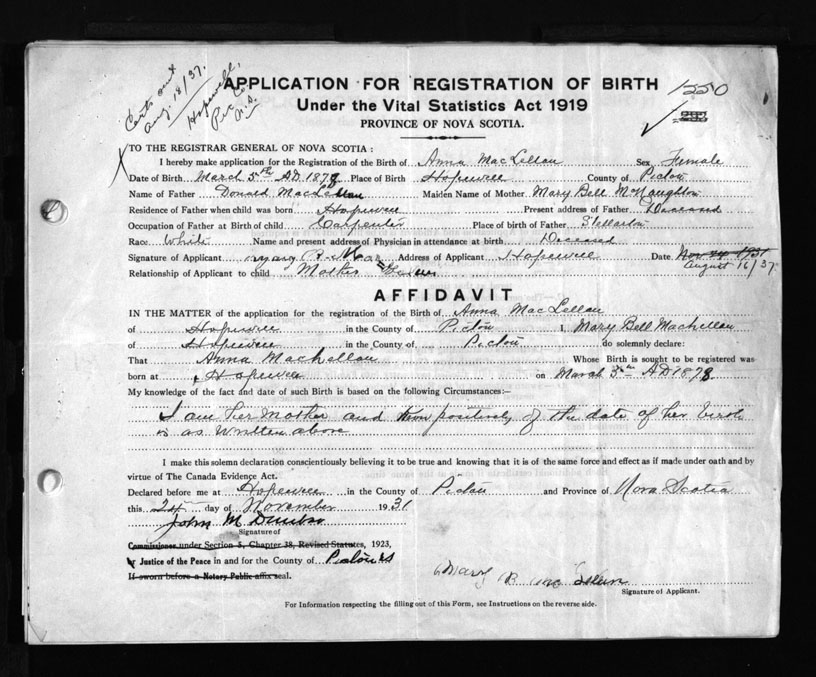 Certs out
Aug. 18/37.
Hopewell,
Pic Co.
N.S.
APPLICATION FOR REGISTRATION OF BIRTH
1550
Under the Vital Statistics Act 1919
PROVINCE OF NOVA SCOTIA.
TO THE REGISTRAR GENERAL OF NOVA SCOTIA:
I hereby make application for the Registration of the Birth of Anna MacLellan Sex Female
Date of Birth March 5th AD 1878 Place of Birth Hopewell County of Pictou
Name of Father Donald MacLellan Maiden Name of Mother Mary Bell McNaughton
Residence of Father when child was born Hopewell Present address of Father Deceased
Occupation of Father at Birth of child Carpenter Place of birth of Father Stellarton
Race White Name and present address of Physician in attendance at birth Deceased
Signature of Applicant Mary B. Address of Applicant Hopewell Date Nov 24 1931
August 16/37.
Relationship of Applicant to child Mother
AFFIDAVIT
IN THE MATTER of the application for the registration of the Birth of Anna MacLellan
of Hopewell in the County of Pictou I, Mary Bell MacLellan
of Hopewell in the County of Pictou do solemnly declare:
That Anna MacLellan Whose Birth is sought to be registered was
born at Hopewell on March 5th AD 1878
My knowledge of the fact and date of such Birth is based on the following Circumstances:—
I am her Mother and know positively of the date of her birth
is as written above
I make this solemn declaration conscientiously believing it to be true and knowing that it is of the same force and effect as if made under oath and by
virtue of The Canada Evidence Act.
Declared before me at Hopewell in the County of Pictou and Province of Nova Scotia
this 24 day of November 1931
John M Dunbar
Signature of
Commissioner under Section 5, Chapter 38, Revised Statutes, 1923,
or Justice of the Peace in and for the County of Pictou NS
If sworn before a Notary Public affix seal.
Mary B. Mc Lellan
Signature of Applicant.
For Information respecting the filling out of this Form, see Instructions on the reverse side.